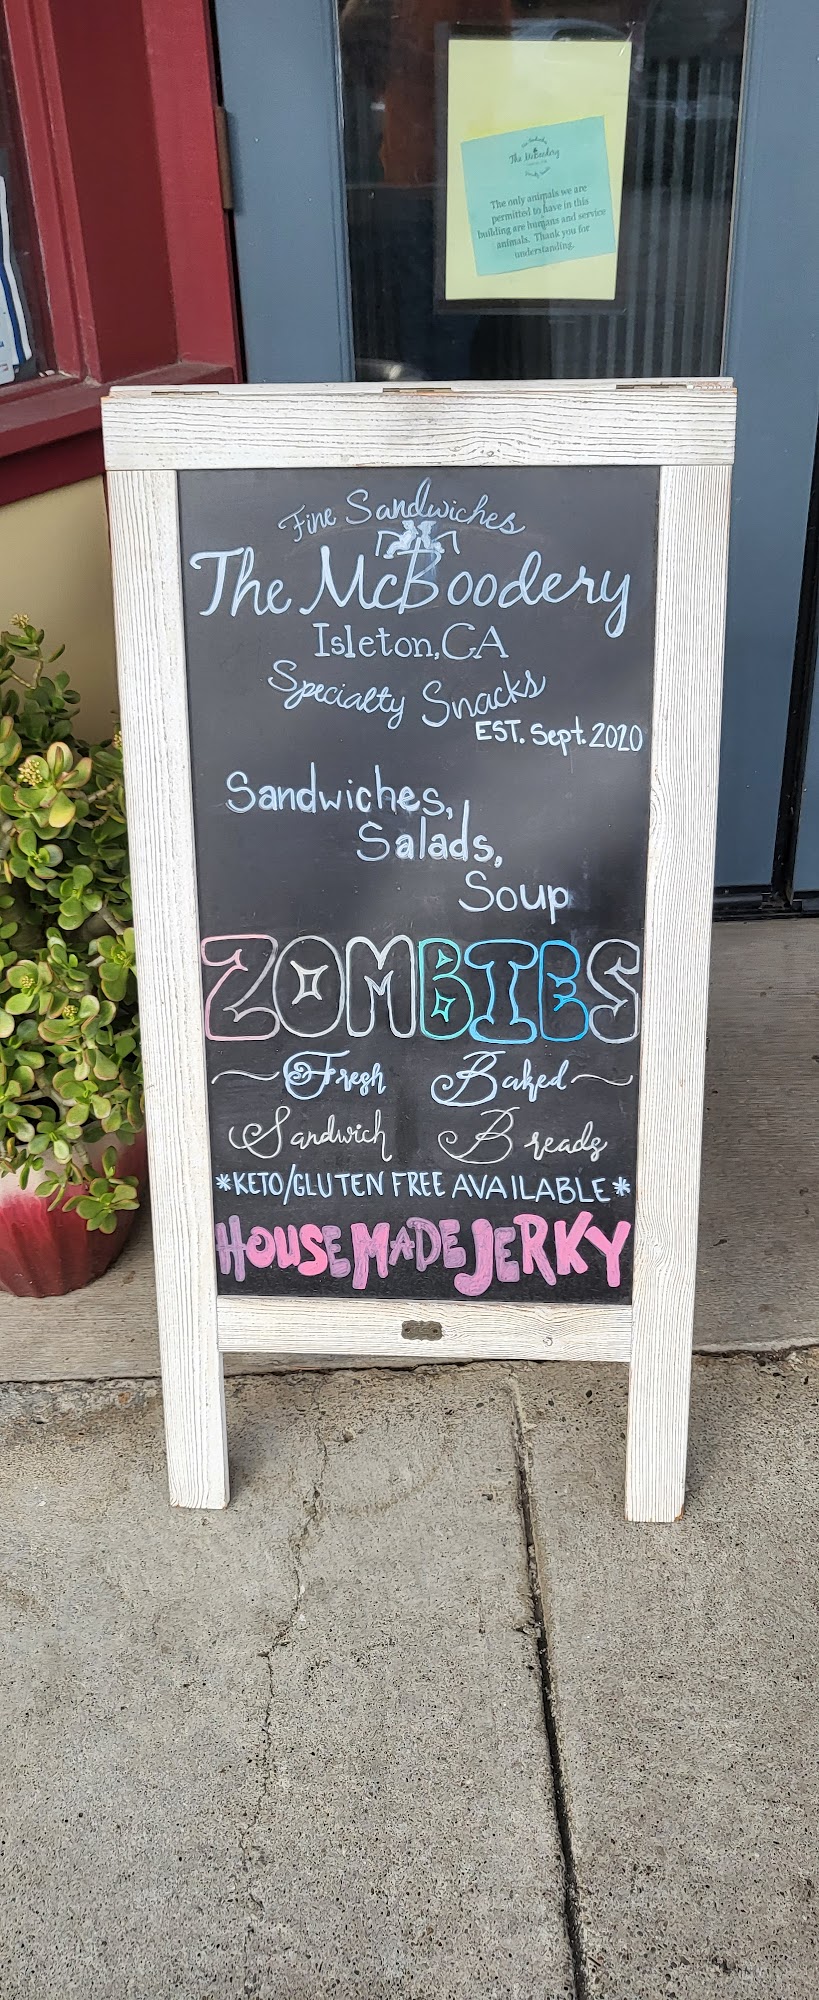 The McBoodery
The only animals we are
permitted to have in this
building are humans and service
animals. Thank you for
understanding.
Fine Sandwiches
The McBoodery
Isleton, CA
Specialty Snacks
EST. Sept. 2020
Sandwiches,
Salads,
Soup
ZOMBIES
Fresh Baked
Sandwich Breads
*KETO/GLUTEN FREE AVAILABLE*
HOUSEMADE JERKY